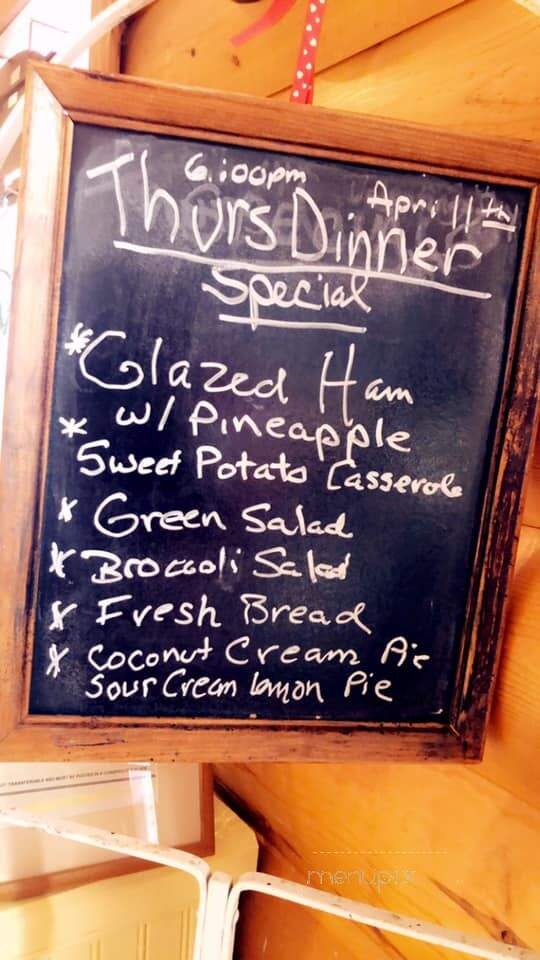 6:00pm
April 11th
Thurs Dinner
Special
*Glazed Ham
w/ Pineapple
* Sweet Potato Casserole
* Green Salad
* Broccoli Salad
* Fresh Bread
* Coconut Cream Pie
Sour Cream lamon Pie
menupix